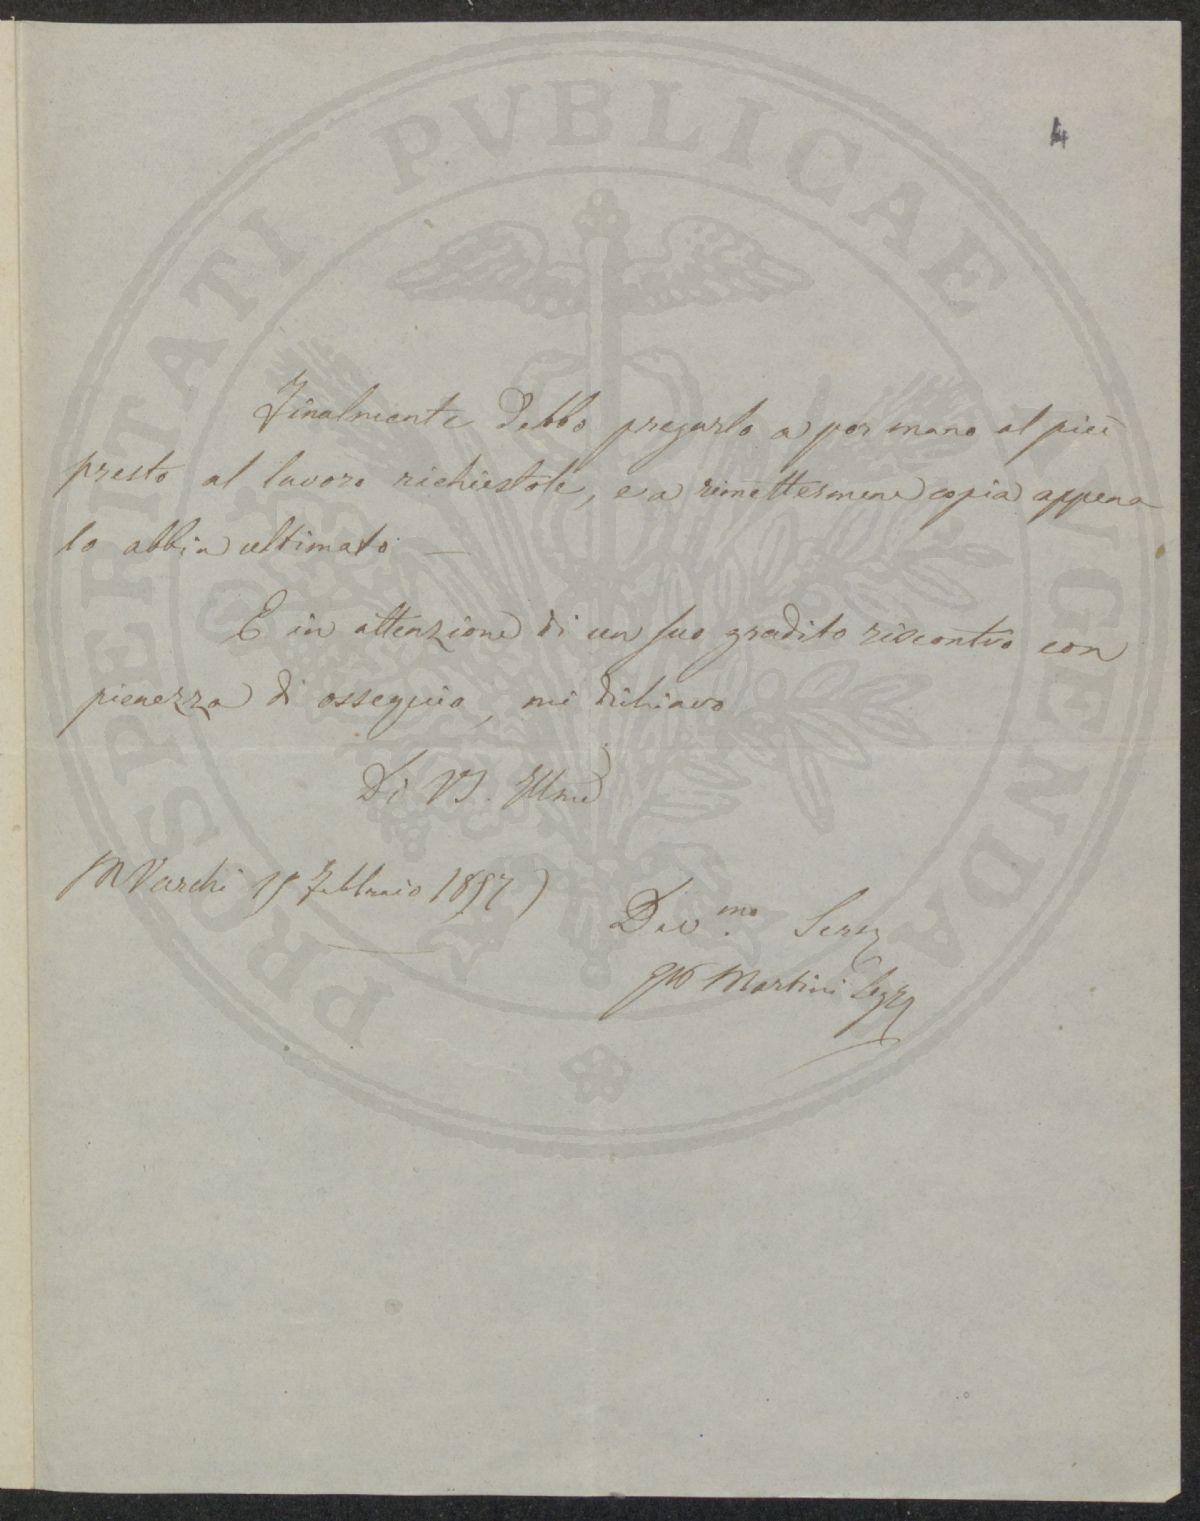 4
Finalmente debbo pregarlo a por mano al più
presto al lavoro richiestole, e a rimettermene copia appena
lo abbia ultimato
E in attenzione di un suo gradito riscontro con
pienezza di ossequio, mi dichiaro
Di VS. Illma
MVarchi Febbraio 1857
Dev.mo Serv
Martini
PROSPERITATI PVBLICAE AVGENDAE